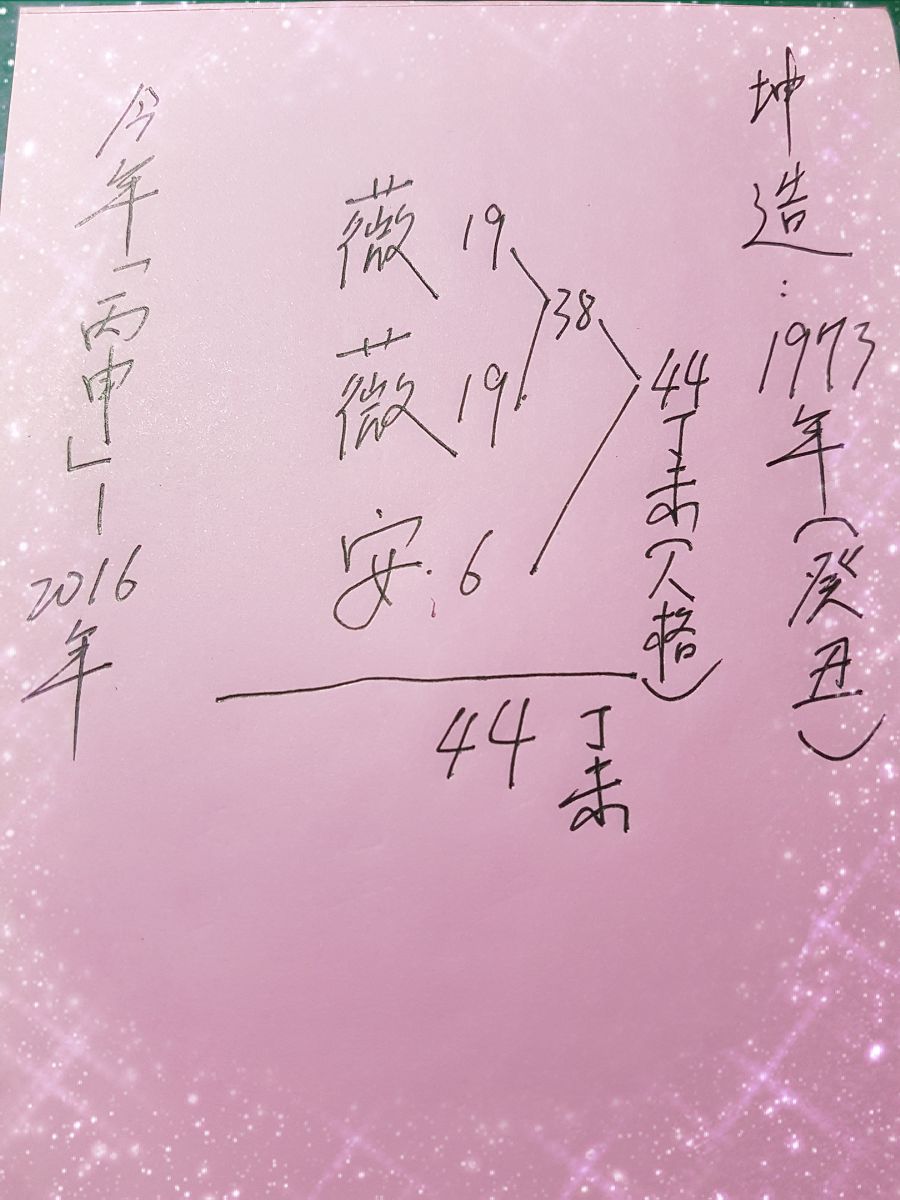 坤造：1973年（癸丑）
44丁未（人格）
38
薇 19
薇 19
安 6
44 丁未
今年「丙申」－2016年